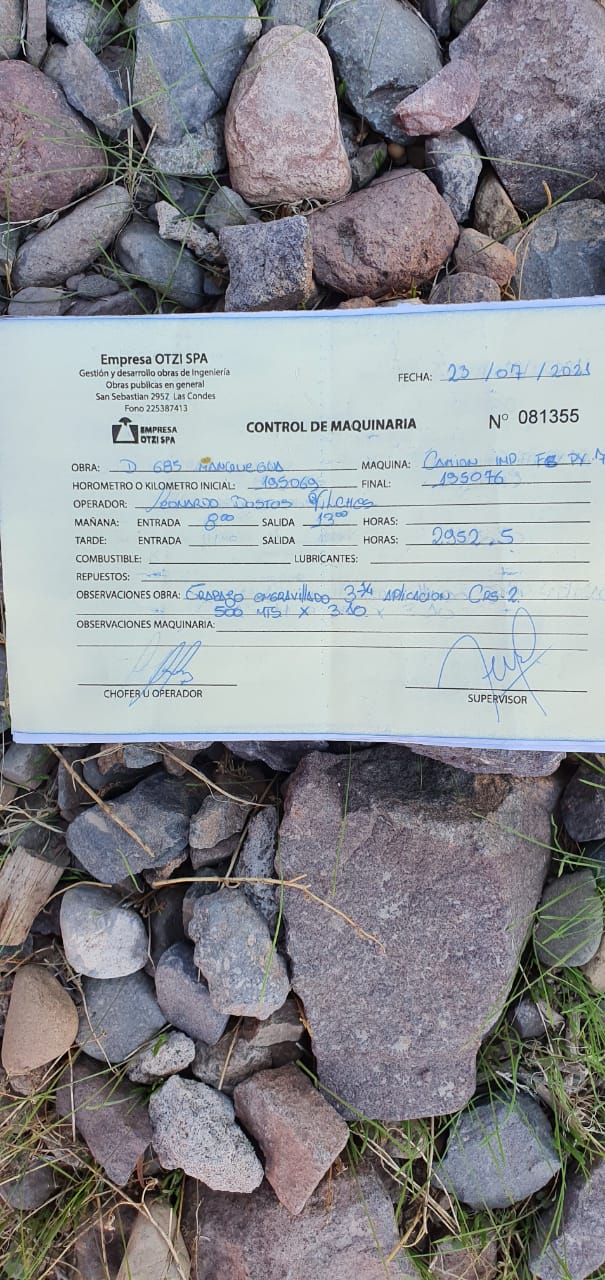 Empresa OTZI SPA
Gestión y desarrollo obras de Ingeniería
Obras publicas en general
San Sebastian 2957 Las Condes
Fono 225387413
EMPRESA
OTZI SPA
FECHA: 23 / 07 / 2021
CONTROL DE MAQUINARIA
N° 081355
OBRA: D 685 MANQUEGUA MAQUINA: CAMION IMP.
HOROMETRO O KILOMETRO INICIAL: 195069 FINAL: 195076
OPERADOR: LEONARDO BUSTOS VILCHES
MAÑANA: ENTRADA 8 00 SALIDA 13 00 HORAS:
TARDE: ENTRADA SALIDA HORAS: 2952.5
COMBUSTIBLE: LUBRICANTES:
REPUESTOS:
OBSERVACIONES OBRA: ENGRAVILLADO 3/4 APLICACION CRS-2
500 MTS X 3.80
OBSERVACIONES MAQUINARIA:
CHOFER U OPERADOR
SUPERVISOR